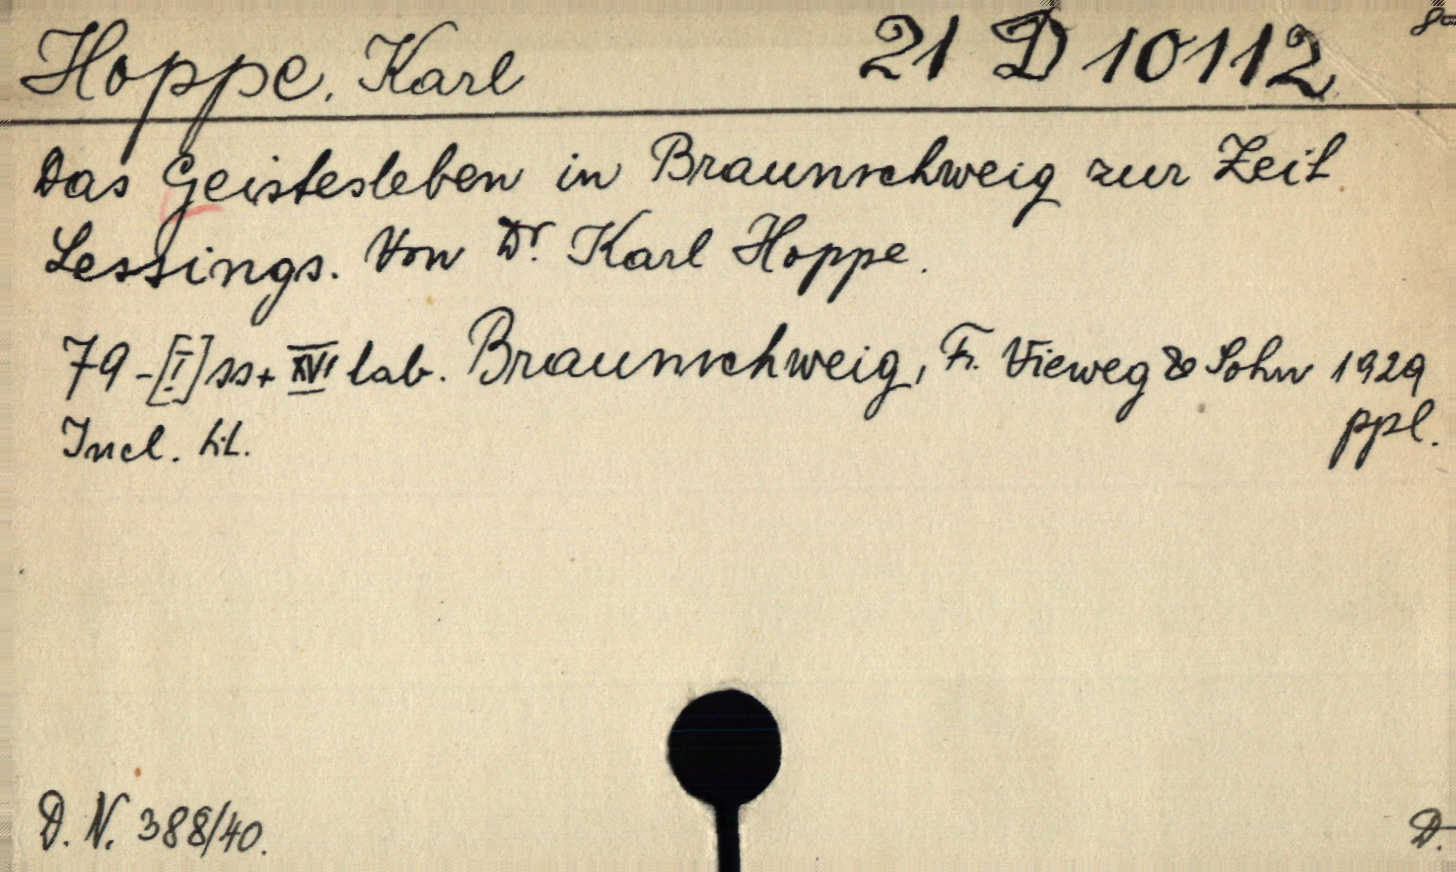 Hoppe, Karl 21 D 10112
Das Geistesleben in Braunschweig zur Zeit
Lessings. Von Dr. Karl Hoppe.
79-[I] ss + XVI tab. Braunschweig, Fr. Vieweg & Sohn 1929
Incl. lit. ppl.
D. N. 388/40. D.